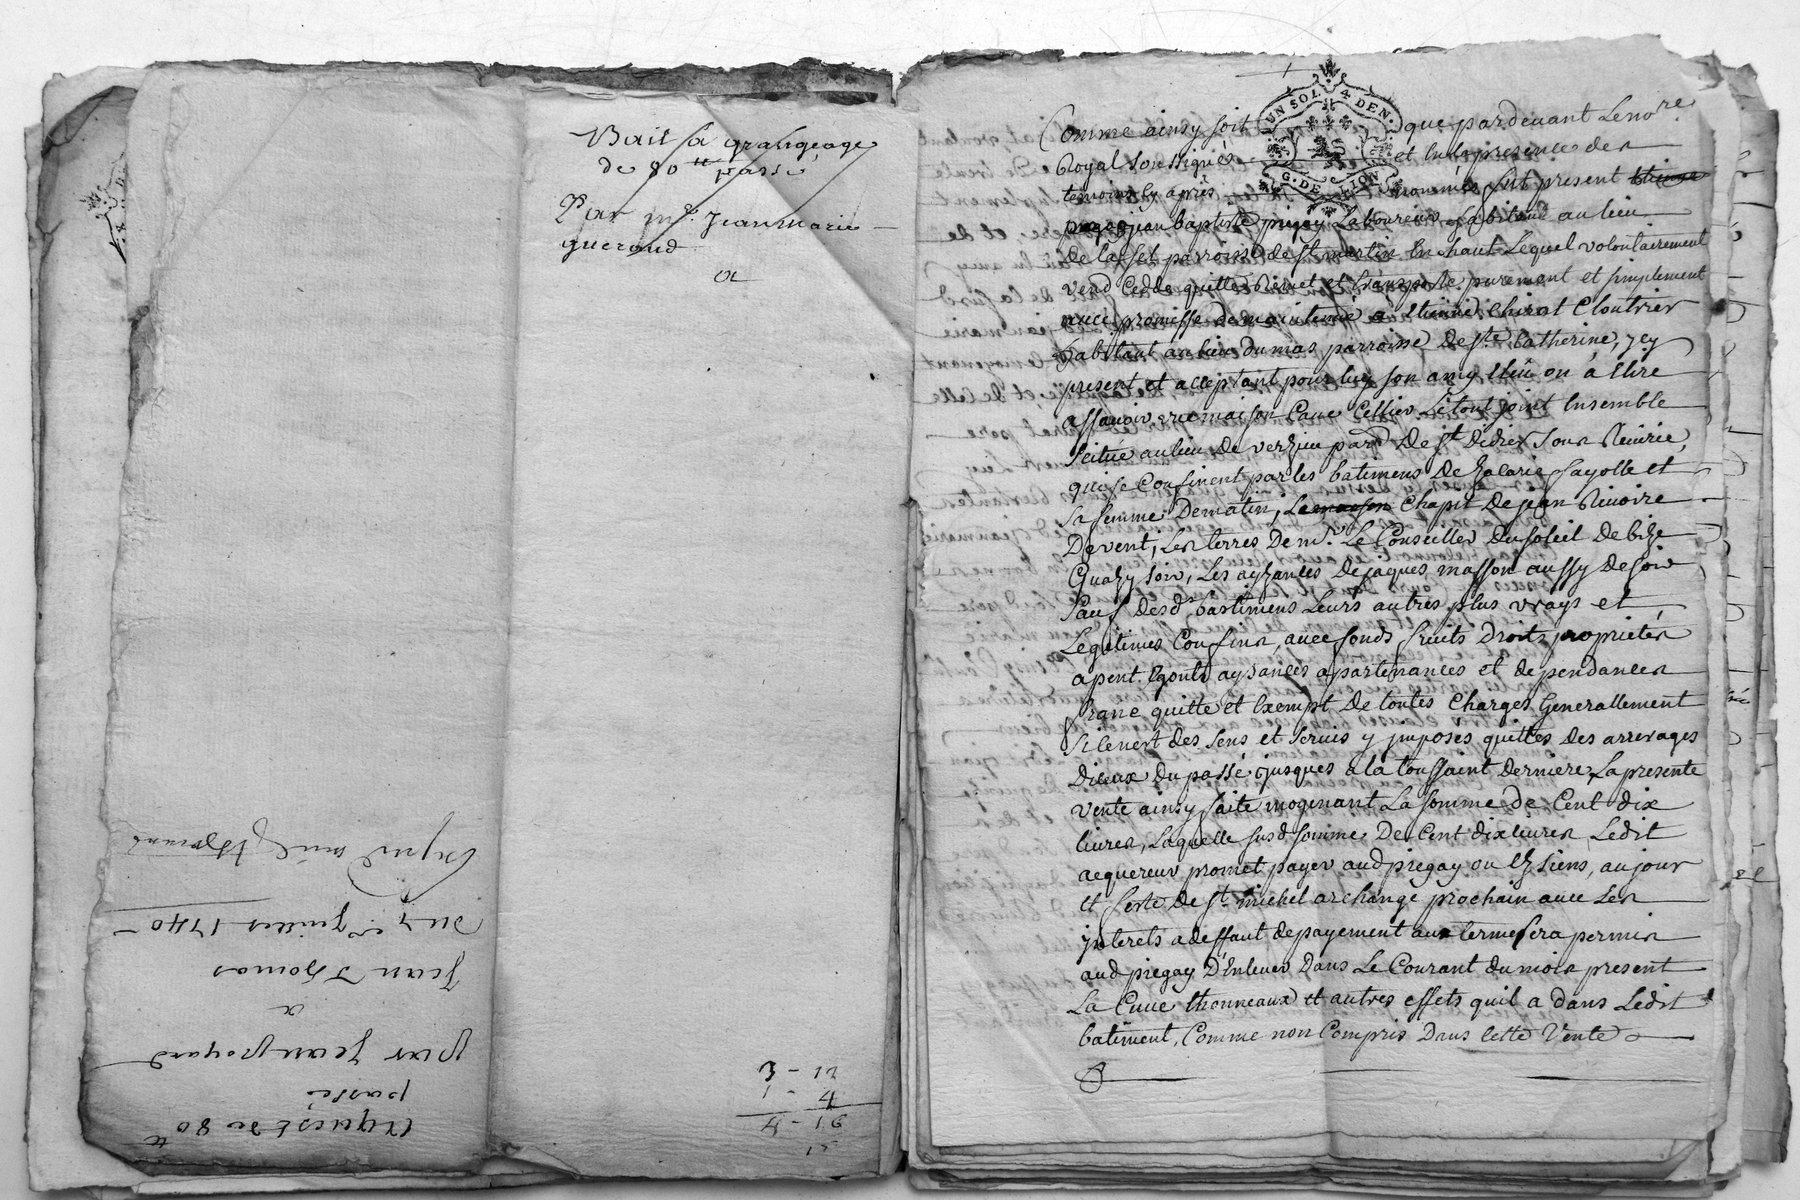 Bail à grangeage
de 80 ₶ passé
Par m.r Jean marie
guerand
a
Aquest de 80 ₶
passé
par Jean poyard
a
Jean Thomas
du 4 e Juillet 1740
21 - 3
4 - 1
UN SOL 4 DEN.
G. DE LION
Comme ainsy soit que pardevant Le no.re
Royal soussigné et en la presence des
temoins cy après nommés fut present
jean baptiste pregay Laboureur habitant au lieu
de la fet parroisse de St martin En haut Lequel volontairement
vend cedde quitte remet et transporte purement et simplement
avec promesse de maintenir a Etienne Chirat Cloutrier
habitant au lieu du mas parroisse de Ste Catherine, icy
present et acceptant pour luy son amy Elû ou à Elire
assavoir une maison Cave Cellier Le tout joint Ensemble
scitué au lieu de verzieu parr.e De St Didier sous Riverie,
qui se Confinent par les batimens De Zacarie fayolle et
sa femme De matin, La maison Chapit De jean Rivoire
De vent, Les terres De mr. Le Conseiller Dusoleil De bize
Quazy soir, Les ayzances De jaques masson aussy De soir
Sauf Desd. bastimens Leurs autres plus vrays et
Legitimes Confins, avec fonds fruits Droits proprietés
apent Egouts aysances apartenances et dependances
franc quitte et Exempt De toutes Charges Generallement
si ce n'est des sens et servis y imposés quittes des arrerages
Diceux Du passé jusques a la toussaint Derniere, La presente
vente ainsy faite moyenant La somme De Cent dix
livres, Laquelle susd. somme De Cent dix livres Ledit
acquereur promet payer aud. pregay ou Es siens, au jour
et feste De St. michel archange prochain avec Les
interets a deffaut de payement aux terme sera permis
aud. pregay D'Enlever Dans Le Courant du mois present
La Cuve thonneaux et autres effets quil a dans Ledit
batiment, Comme non Compris Dans Cette Vente